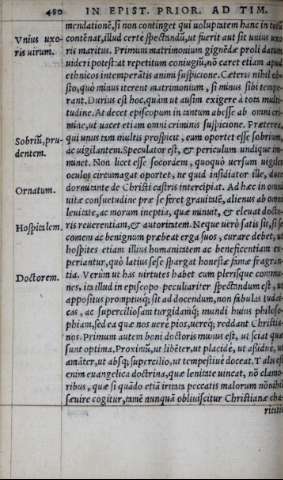 480 IN EPIST. PRIOR. AD TIM.
mendationē, si non continget qui uoluptatem hanc in
Vnius uxoris uirum.
contēnat, illud certe spectandū, ut fuerit aut sit unius uxo
ris maritus. Primum matrimonium gignēdæ proli datum
uideri potest: at repetitum coniugiū, nō caret etiam apud
ethnicos intemperātis animi suspicione. Cæterū nihil ob-
sto, quo minus iterent matrimonium, si minus sibi tempe-
rant. Durius est hoc, quàm ut ausim exigere à tota multi-
tudine. At decet episcopum in tantum abesse ab omni cri-
mine, ut uacet etiam omni criminis suspicione. Præterea
Sobriū, prudentem.
qui unus tam multis prospicit, eum oportet esse sobrium,
ac uigilantem. Speculator est, & periculum undique im-
minet. Non licet esse socordem, quoquò uersum uigiles
oculos circumagat oportet, ne quid insidiator ille, de
dormitante de Christi castris intercipiat. Ad hæc in omni
Ornatum.
uitæ consuetudine præ se feret grauitatē, alienus ab omni
leuitate, ac morum ineptia, quæ minuit, & eleuat docto-
Hospitalem.
ris reuerentiam, & autoritatem. Neque uerò satis sit, si se
comem ac benignum præbeat erga suos, curare debet, ut
hospites etiam illius humanitatem ac beneficentiam ex-
periantur, quò latius sese spargat honestæ famæ fragran-
Doctorem.
tia. Verùm ut has uirtutes habet cum plerisque commu-
nes, ita illud in episcopo peculiariter spectandum est, ut
appositus promptusq; sit ad docendum, non fabulas Iudai-
cas, ac superciliosam turgidamq; mundi huius philoso-
phiam, sed ea quæ nos uerè pios, uereq; reddant Christia-
nos. Primum autem boni doctoris munus est, ut sciat quæ
sunt optima. Proximū, ut libēter, ut placidè, ut
amāter, ut absq; supercilio, ut tempestiue doceat. Talis est
enim euangelica doctrina, quæ lenitate uincat, nō clamo-
ribus, quæ si quādo etiā inuita peccatis malorum
sæuire cogitur, tamē nunquā obliuiscitur Christianæ cha-
ritatis